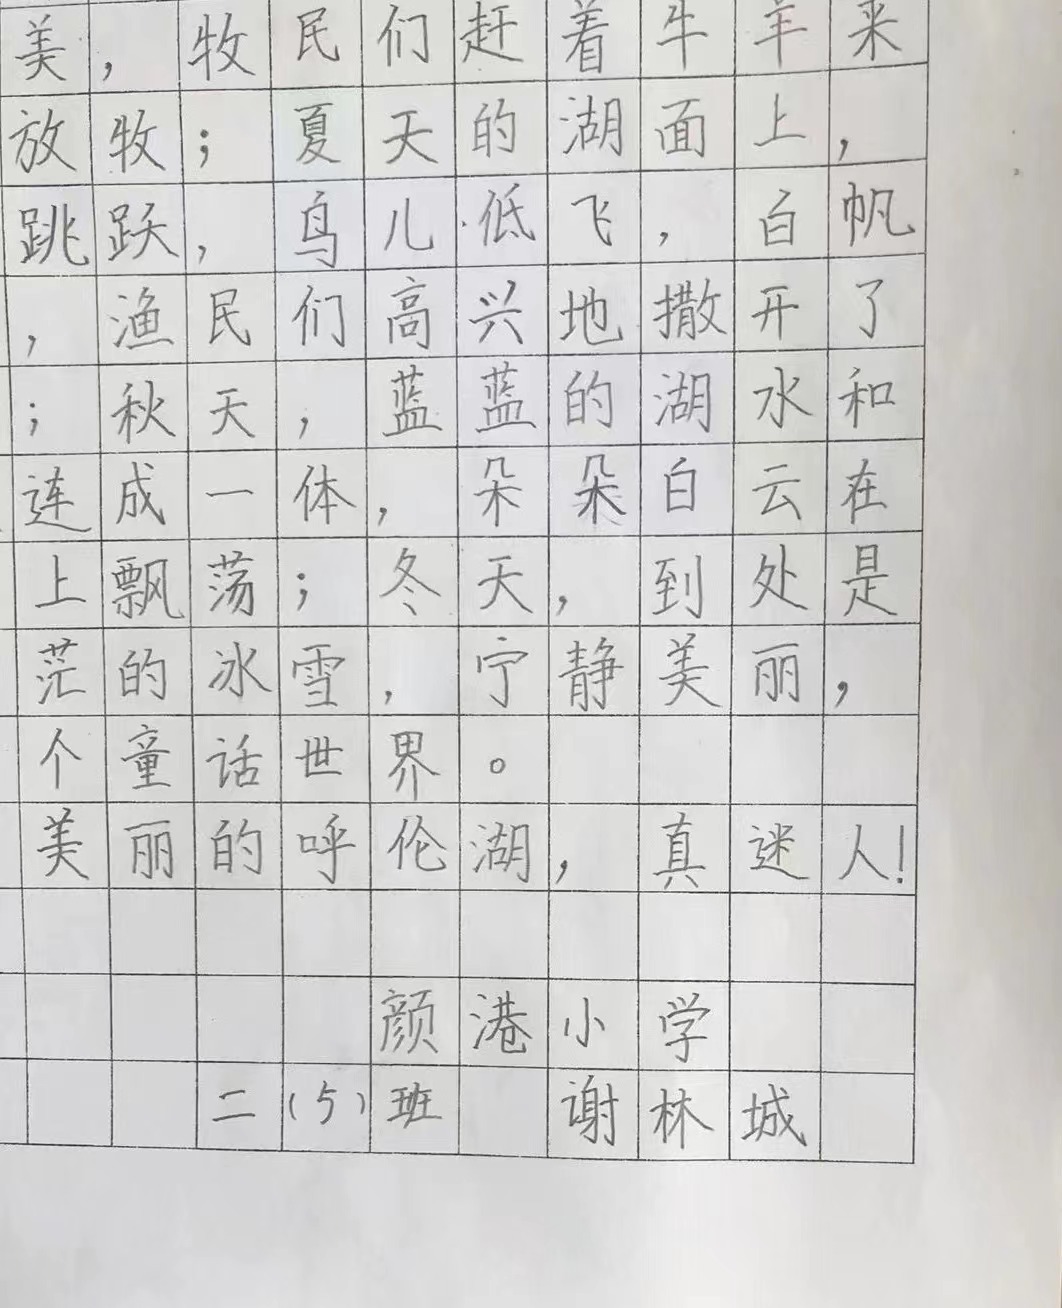 美，牧民们赶着牛羊来
放牧；夏天的湖面上，
跳跃，鸟儿低飞，白帆
，渔民们高兴地撒开了
；秋天，蓝蓝的湖水和
连成一体，朵朵白云在
上飘荡；冬天，到处是
茫的冰雪，宁静美丽，
个童话世界。
美丽的呼伦湖，真迷人！
颜港小学
二（5）班 谢林城